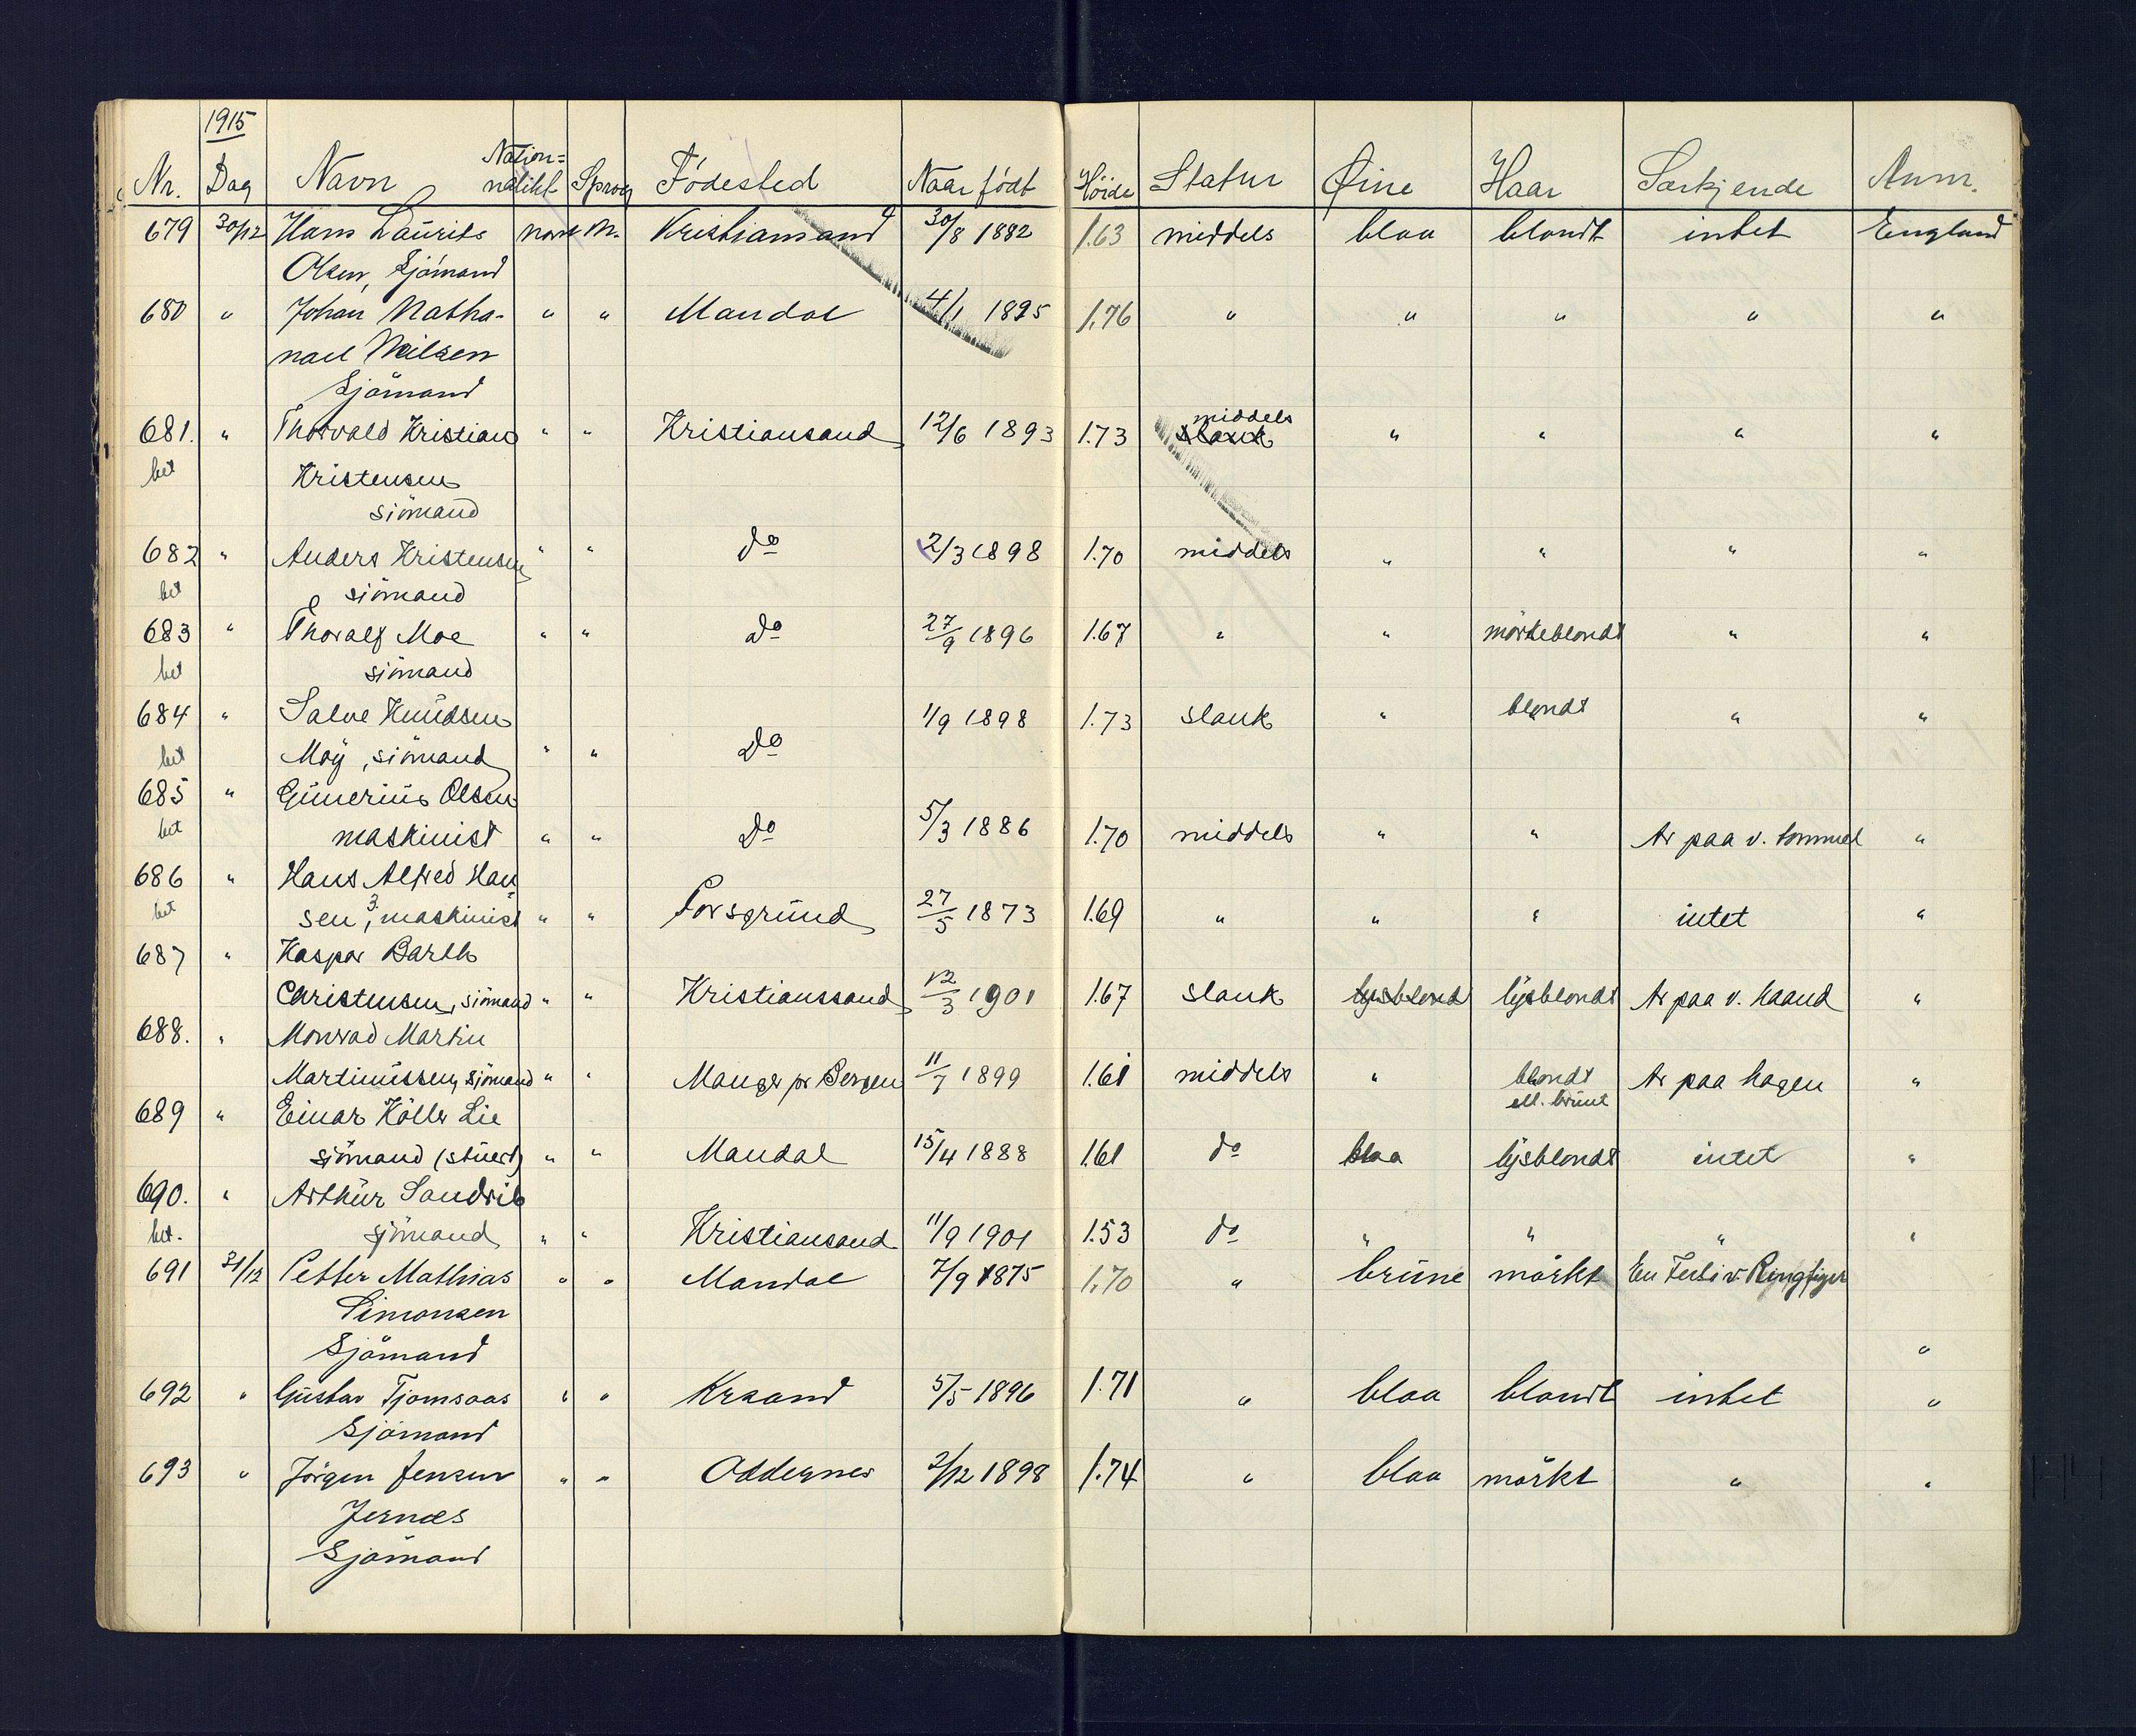 1915
Nr. Dag Navn Nation= nalitet Sprog Födested Naar födt Höide Statur Øine Haar Særkjende Anm.
679 30/12 Hans Laurits norsk N. Kristiansand 30/8 1882 1.63 middels blaa blondt intet England
Olsen, Sjömand
680 " Johan Natha- " " Mandal 4/1 1895 1.76 " " " " "
nael Nilsen
Sjömand
681. " Thorvald Kristian " " Kristiansand 12/6 1893 1.73 middels slank " " " "
bet Kristensen
sjömand
682 " Anders Kristensen " " do 2/3 1898 1.70 middels " " " "
bet sjömand
683 " Thoralf Moe " " do 27/9 1896 1.67 " " mörkeblondt " "
bet sjömand
684 " Salve Knudsen 1/9 1898 1.73 slank " blondt " "
bet Moy, sjömand " " do
685 " Gunerius Olsen
bet maskinist " " do 5/3 1886 1.70 middels " " Ar paa v. tommel "
686 " Hans Alfred Han-
bet sen, 3. maskinist " " Porsgrund 27/5 1873 1.69 " " " intet "
687 " Kaspar Barth
Christensen, sjömand " " Kristianssand 12/3 1901 1.67 slank lysblond lysblondt Ar paa v. haand "
688. " Monrad Martin
Martinussen, sjömand " " Manger pr Bergen 11/7 1899 1.61 middels " blondt Ar paa hagen "
ell. brunt
689 " Einar Köller Lie
sjömand (stuert) " " Mandal 15/4 1888 1.61 do blaa lysblondt intet "
690. " Arthur Sandvik
bet. sjömand " " Kristiansand 11/9 1901 1.53 do " " " "
691 31/12 Petter Mathias " " Mandal 7/9 1875 1.70 " brune mörkt En v. Ringfinger
Simonsen
Sjömand "
692 " Gustav Tjomsaas " " Krsand 5/5 1896 1.71 " blaa blondt intet "
Sjömand
693 " Jörgen Jensen " " Oddernes 2/12 1898 1.74 " blaa mörkt " "
Jernæs
Sjömand